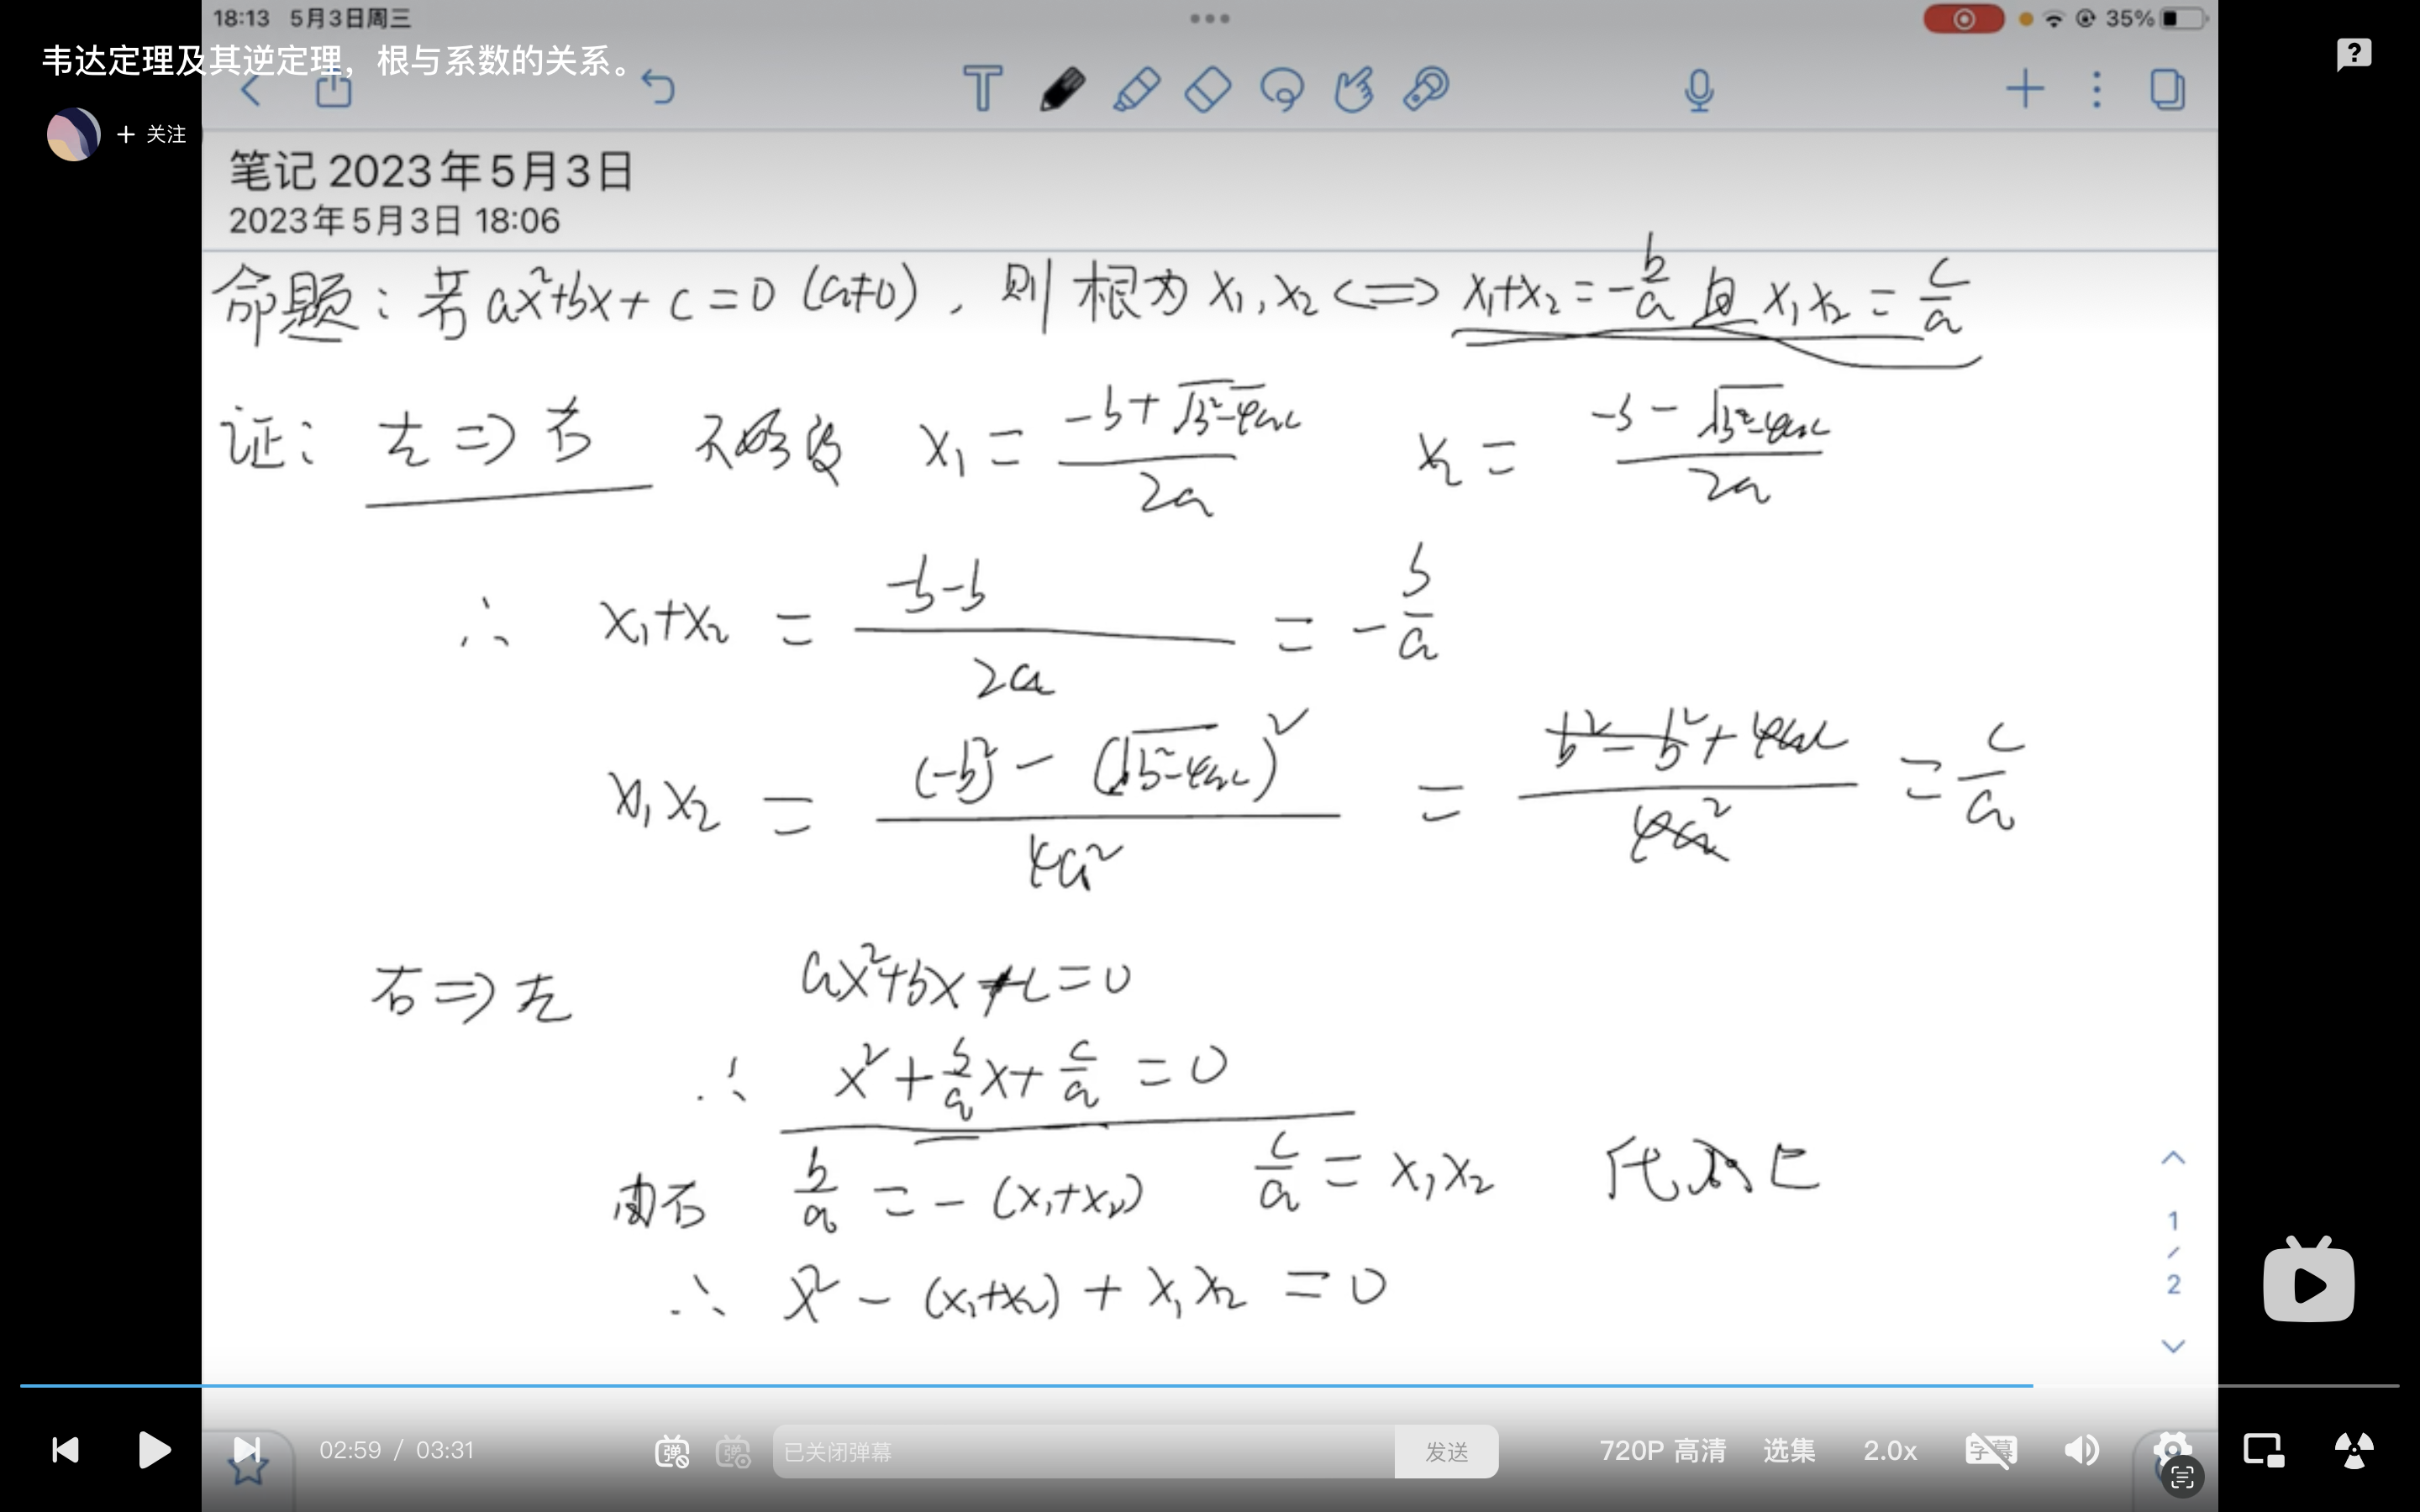 18:13 5月3日周三
35%
韦达定理及其逆定理，根与系数的关系。
+ 关注
笔记 2023年5月3日
2023年5月3日 18:06
命题：若 ax²+bx+c=0 (a≠0)，则根为 x₁,x₂ <=> x₁+x₂=-b/a 且 x₁x₂=c/a
证：左=>右 不妨设 x₁=(-b+√(b²-4ac))/2a x₂=(-b-√(b²-4ac))/2a
∴ x₁+x₂=(-b-b)/2a=-b/a
x₁x₂=((-b)²-(√(b²-4ac))²)/4a²=(b²-b²+4ac)/4a²=c/a
右=>左 ax²+bx+c=0
∴ x²+b/a x+c/a=0
由右 b/a=-(x₁+x₂) c/a=x₁x₂ 代入
∴ x²-(x₁+x₂)+x₁x₂=0
1
/
2
02:59 / 03:31
弹
弹
已关闭弹幕
发送
720P 高清
选集
2.0x
字幕